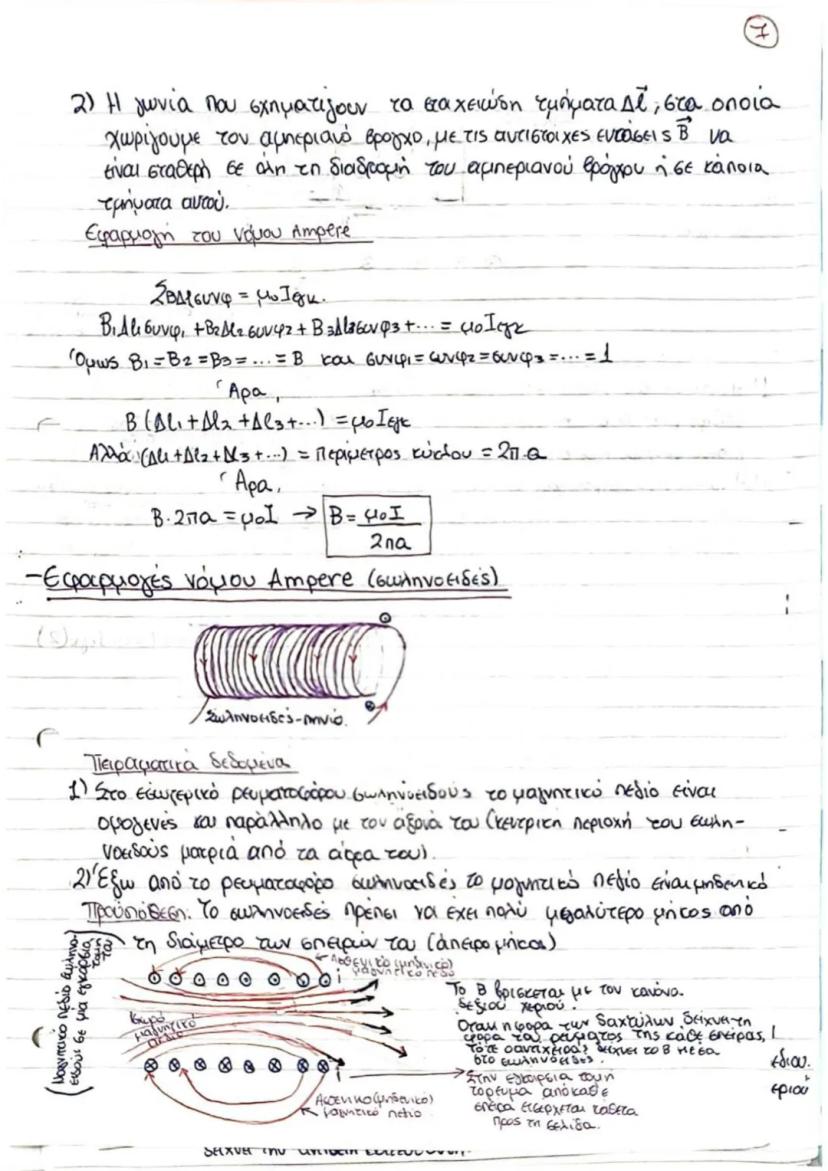 7
2) Η γωνία που σχηματίζουν τα στοιχειώδη τμήματα Δl⃗, στα οποία
χωρίζουμε τον αμπεριανό βρόγχο, με τις αντίστοιχες εντάσεις B⃗ να
είναι σταθερή σε όλη τη διαδρομή του αμπεριανού βρόγχου ή σε κάποια
τμήματα αυτού.
Εφαρμογή του νόμου Ampere
ΣΒΔlσυνφ = μοΙεγκ.
Β₁Δl₁συνφ₁ + Β₂Δl₂συνφ₂ + Β₃Δl₃συνφ₃ + ... = μοΙεγκ
Όμως Β₁ = Β₂ = Β₃ = ... = Β και συνφ₁ = συνφ₂ = συνφ₃ = ... = 1
Άρα,
Β (Δl₁ + Δl₂ + Δl₃ + ...) = μοΙεγκ
Αλλά (Δl₁ + Δl₂ + Δl₃ + ...) = περίμετρος κύκλου = 2π.α
Άρα,
Β·2πα = μοΙ → Β = μοΙ / 2πα
- Εφαρμογές νόμου Ampere (σωληνοειδές)
Σωληνοειδές-πηνίο.
Πειραματικά δεδομένα
1) Στο εσωτερικό ρευματοφόρου σωληνοειδούς το μαγνητικό πεδίο είναι
ομογενές και παράλληλο με τον άξονά του (κεντρική περιοχή του σωλη-
νοειδούς μακριά από τα άκρα του).
2) Έξω από το ρευματοφόρο σωληνοειδές το μαγνητικό πεδίο είναι μηδενικό
Προϋπόθεση: Το σωληνοειδές πρέπει να έχει πολύ μεγαλύτερο μήκος από
τη διάμετρο των σπειρών του (άπειρο μήκος)
(Μαγνητικό πεδίο σωληνο-
ειδούς σε μια εγκάρσια τομή
του)
Ασθενικό (μηδενικό)
μαγνητικό πεδίο
i
Ισχυρό
μαγνητικό
πεδίο
i
Ασθενικό (μηδενικό)
μαγνητικό πεδίο.
Το Β βρίσκεται με τον κανόνα
δεξιού χεριού.
Όταν η φορά των δαχτύλων δείχνει τη
φορά του ρεύματος της κάθε σπείρας,
τότε ο αντίχειρας δείχνει το Β μέσα
στο σωληνοειδές.
Στην εγκάρσια τομή
το ρεύμα από κάθε
σπείρα εισέρχεται κάθετα
προς τη σελίδα.
εδιου.
εριού